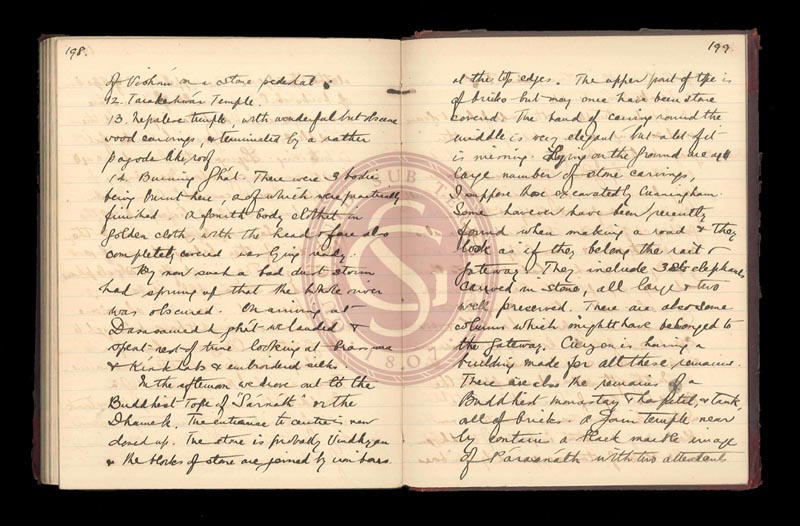 198.
of Vishnu on a stone pedestal.
12. Tarakeshwar Temple.
13. Nepalese temple, with wonderful but obscene
wood carvings, & terminated by a rather
pagoda like roof
14. Burning Ghât. There were 3 bodies
being burnt here, 2 of which were practically
finished. A fourth body clothed in
golden cloth, with the head & face also
completely covered was lying ready.
By now such a bad dust storm
had sprung up that the whole river
was obscured. On arriving at
ghât we landed &
spent rest of time looking at
& Kinkobs & embroidered silks.
In the afternoon we drove out to the
Buddhist Tope of "Sarnath" or the
Dhamek. The entrance to centre is now
closed up. The stone is probably Vindhyan
& the blocks of stone are joined by iron bars
199
at the top edges. The upper part of tope is
of bricks but may once have been stone
covered. The band of carving round the
middle is very elegant but a lot of it
is missing. Lying on the ground are a
large number of stone carvings,
I suppose those excavated by Cunningham.
Some however have been recently
found when making a road & they
look as if they belong the rail
gateway. They include 3 elephants
carved in stone, all large & two
well preserved. There are also some
columns which might have belonged to
the gateway. Curzon is having a
building made for all these remains.
There are also the remains of a
Buddhist monastery & hospital, & tank,
all of bricks. A Jain temple near
by contains a black marble image
of Pârasnâth with two attendant
CLUB
SG
1807